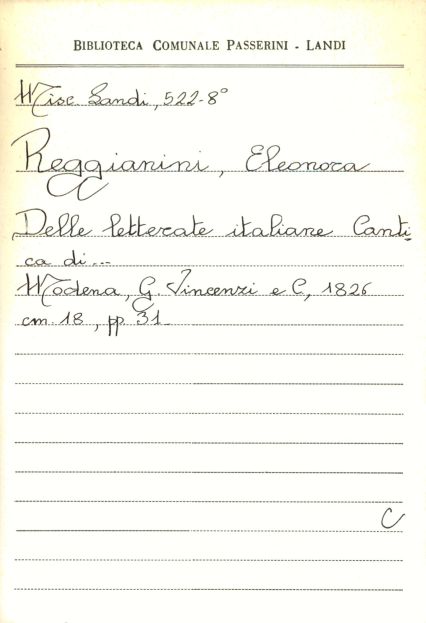 BIBLIOTECA COMUNALE PASSERINI - LANDI
Misc. Landi, 522-8°
Reggianini, Eleonora
Delle letterate italiane Canti-
ca di...
Modena, G. Vincenzi e C., 1826
cm. 18, pp. 31
C